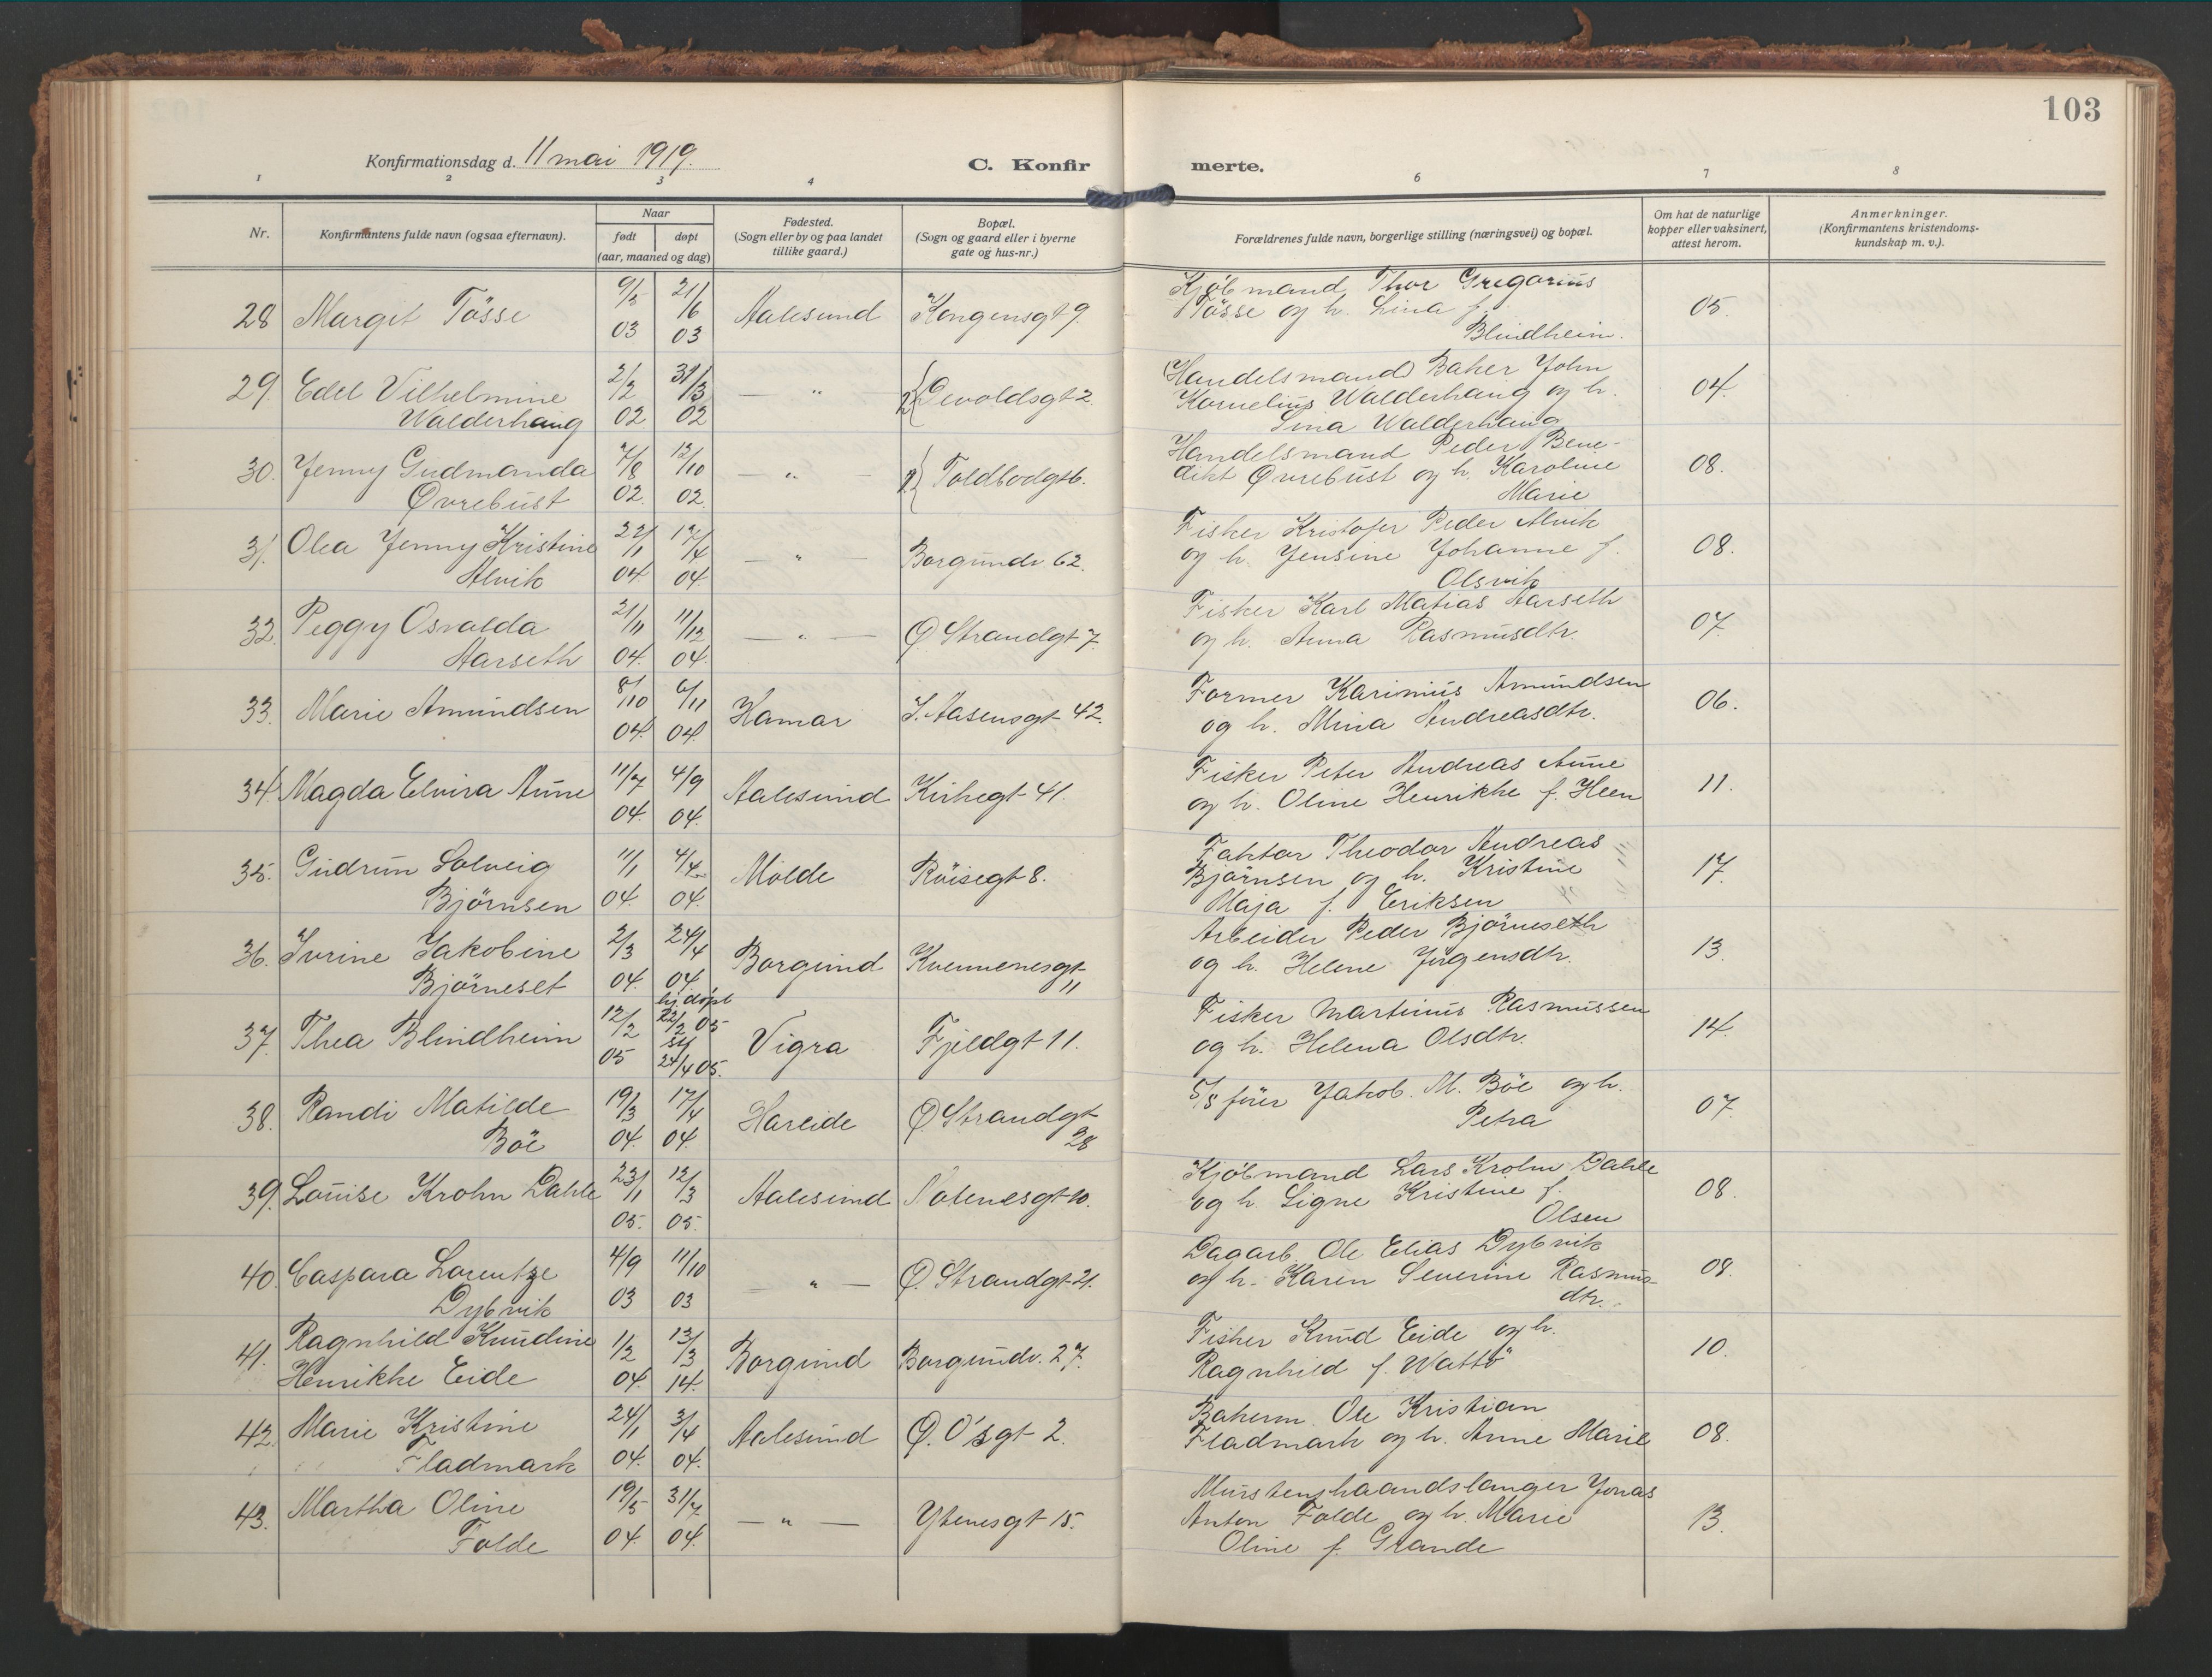 103
Konfirmationsdag d. 11 mai 1919.
C. Konfirmerte.
1 2 3 4 6 7 8
Nr.
Konfirmantens fulde navn (ogsaa efternavn).
Naar
født
døpt
(aar, maaned og dag)
Fødested.
(Sogn eller by og paa landet
tillike gaard.)
Bopæl.
(Sogn og gaard eller i byerne
gate og hus-nr.)
Forældrenes fulde navn, borgerlige stilling (næringsvei) og bopæl.
Om hat de naturlige
kopper eller vaksinert,
attest herom.
Anmerkninger.
(Konfirmantens kristendoms-
kundskap m. v.).
28 Margit Tösse 9/3 03 21/6 03 Aalesund Kongensgt 9. Kjøbmand Thor Gregorius
Tösse og h. Lina f.
Blindheim. 05.
29. Edel Vilhelmine
Walderhaug 2/2 02 31/3 02 — " — Devoldsgt 2. Handelsmand Baker John
Kornelius Walderhaug og h.
Lina Walderhaug 04.
30. Jenny Gudmanda
Øvrebust 7/8 02. 12/10 02. — " — Toldbodgt 6. Handelsmand Peder Bene-
dikt Øvrebust og h. Karoline
Marie 08.
31. Olea Jenny Kristine
Alvik 22/1 04 17/4 04 — " — Borgundv. 62. Fisker Kristofer Peder Alvik
og h. Jensine Johanne f.
Olsvik 08.
32. Peggy Osvalda
Aarseth 21/11 04. 11/12 04. — " — Ø Strandgt 7. Fisker Karl Matias Aarseth
og h. Anna Rasmusdtr. 07.
33. Marie Amundsen 8/10 04. 6/11 04. Hamar I. Aasensgt 42. Former Karinius Amundsen
og h. Mina Andreasdtr. 06.
34. Magda Elvira Aune 11/7 04. 4/9 04. Aalesund Kirkegt 41. Fisker Peter Andreas Aune
og h. Oline Henrikke f. Heen 11.
35. Gudrun Solveig
Björnsen 11/1 04. 4/4 04. Molde Röisegt 8. Faktor Theodor Andreas
Björnsen og h. Kristine
Maja f. Eriksen 17.
36. Ivrine Jakobine
Björneset 2/3 04. 24/4 04. Borgund Kvennenesgt
11 Arbeider Peder Björneseth
og h. Helene Jörgensdtr. 13.
37. Thea Blindheim 12/2 05 hj. döpt
22/2 05
24/4 05. Vigra Fjeldgt 11. Fisker Martinus Rasmussen
og h. Helena Olsdtr. 14.
38. Randi Matilde
Böe 19/3 04. 17/4 04. Hareide Ø Strandgt
28 S/S förer Jakob. M. Böe og h.
Petra 07.
39. Louise Krohn Dahle 23/1 05. 12/3 05. Aalesund Notenesgt 10. Kjöbmand Lars Krohn Dahle
og h. Signe Kristine f.
Olsen 08.
40. Caspara Lorentze
Dybvik 4/9 03 11/10 03 " — Ø. Strandgt 21. Dagarb. Ole Elias Dybvik
og h. Karen Severine Rasmus-
dtr. 08.
41. Ragnhild Knudine
Henrikke Eide 1/2 04. 13/3 14. Borgund Borgundv. 27. Fisker Knud Eide og h.
Ragnhild f. Wattö 10.
42. Marie Kristine
Fladmark 24/1 04. 3/4 04. Aalesund Ø. O's gt 2. Bakerm. Ole Kristian
Fladmark og h. Anne Marie 08.
43. Martha Oline
Folde 19/5 04. 31/7 04. — " — Ytenesgt 15. Murstenshaandslanger Jonas
Anton Folde og h. Marie
Oline f. Grande 13.